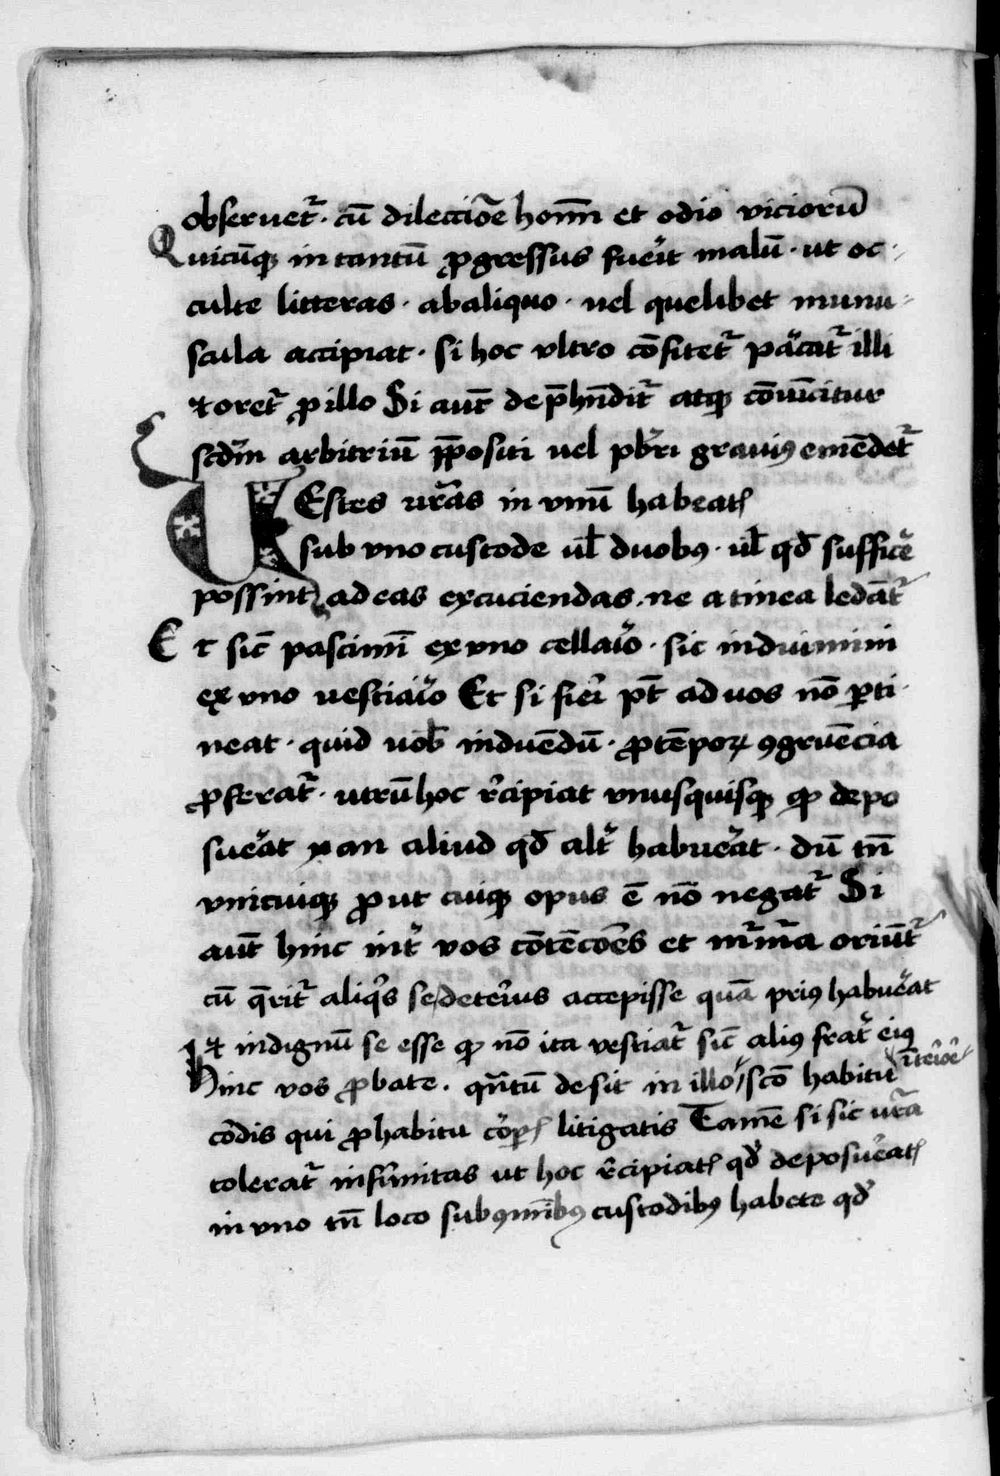 obseruet᷑ · cū dileccōe hoīm et odio vicioꝝ
Quicūqꝫ in tantū ꝓgressus fuerit malū · ut oc-
culte litteras · ab aliquo · vel quelibet munu-
scula accipiat · si hoc vltro cōfitet᷑ parcat᷑ illi
⁊ oret᷑ ꝓ illo Si aut̄ dep̄hendit᷑ atqꝫ cōuīcitur
scd̄m arbitriū p̄positi vel pb̄ri grauiꝰ emēdet᷑
UEstes vr̄as in vnū habeatꝭ
sub vno custode vl̄ duobꝰ · vl̄ qd̄ sufficē
possint ad eas excuciendas · ne a tinea ledāt᷑
Et sic̄ pascimī ex vno cellaīo · sic induimini
ex vno vestiaīo Et si fieri pt̄ ad vos nō ꝑti-
neat · quid vob̄ induēdū · ꝓ tēpoꝝ ꝯgruēcia
ꝓferat᷑ · utrū hoc rēcipiat vnusquisqꝫ qꝫ depo
suēat an aliud qd̄ alt᷑ habuēat · dū tn̄
vnicuiqꝫ ꝓut cuiqꝫ opus ē nō negat᷑ Si
aut̄ hinc int᷑ vos cōtēcōes et mᷓmᷓa oriūt᷑
cū q̄rit᷑ aliqᷤs se deteriꝰ accepisse quā priꝰ habuēat
⁊ indignū se esse qꝫ nō ita vestiat᷑ sic̄ aliꝰ frat᷑ eiꝰ
Hinc vos ꝓbate · qn̄tū desit in illo scō habitu īteriōē
cordis qui ꝓ habitu corꝑꝭ litigatis Tamē si sic vr̄a
tolerat᷑ infirmitas ut hoc rēcipiatꝭ qd̄ deposuēatꝭ
in vno tn̄ loco sub ꝯmībꝰ custodibꝰ habete qd̄